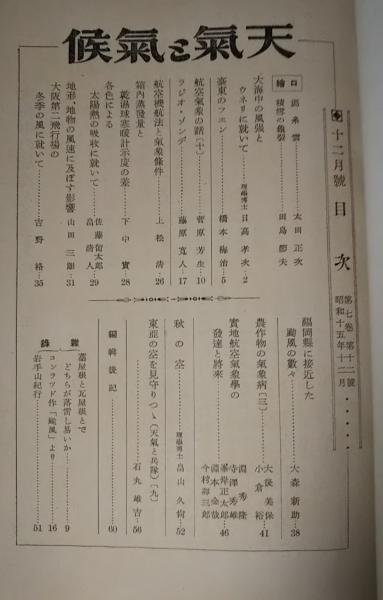 天氣と氣候
十二月號 目次
第七卷第十二號
昭和十五年十二月
口繪
積雪の龜裂 田島節夫
太田正次
大海中の風强と
ウネリに就いて 理學博士 日高孝次…2
臺東のフエン 橋本梅治…5
航空氣象の話〔十〕 菅原芳生…10
ラジオ・ゾンデ 藤原寬人…17
航空機航法と氣象條件 上松清…26
箱內蒸發量と
乾濕球寒暖計示度の差 下中實…28
各色による
太陽熱の吸收に就いて 佐藤留太郎
畠清人…29
地形、地物の風速に及ぼす影響 山田三朗…31
大阪第二飛行場の
冬季の風に就いて 吉野格…35
福岡縣に接近した
颱風の數々 大森新助…38
農作物の氣象病〔三〕 大後美保
小倉裕…41
實地航空氣象學の
發達と將來 淵秀隆
寺澤秀雄
峯岸正太郎
淵本金哉
今村壽三郎…46
秋の空 理學博士 畠山久尙…52
東亞の空を見守りつゝ(天氣と兵隊)〔九〕 石丸雄吉…56
編輯後記 60
雜錄
藁屋根と瓦屋根とで
どちらが落雷し易いか 9
コンラツド作「颱風」より 16
岩手山紀行 51